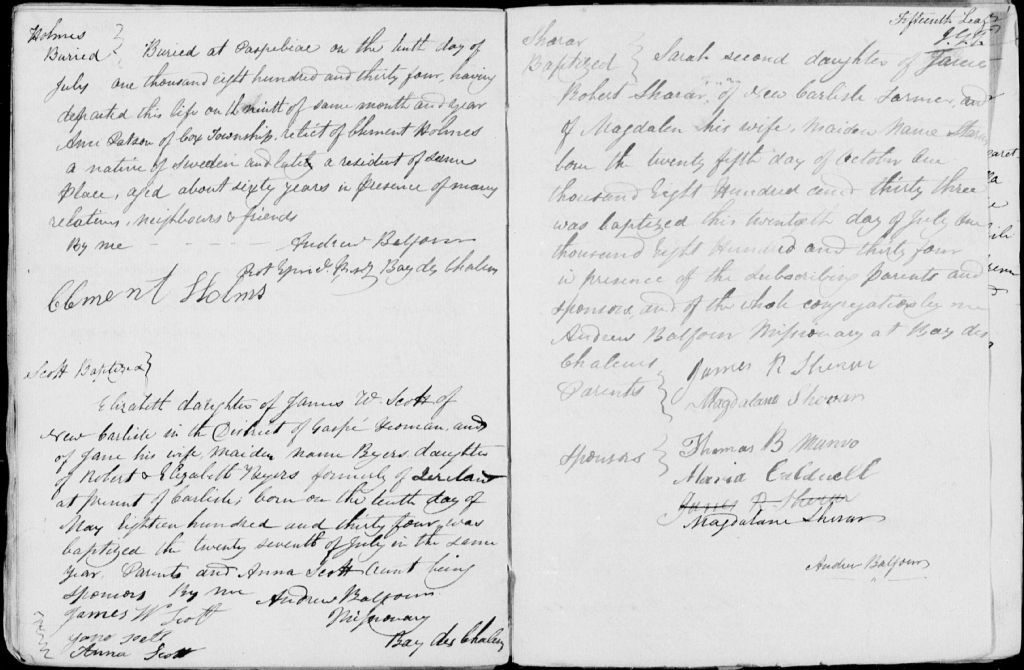 Holmes
Buried
Buried at Paspebiac on the tenth day of
July one thousand eight hundred and thirty four, having
departed this life on the ninth of same month and year
Ann Patson of Cox Township, relict of Clement Holmes
a native of Sweden and lately a resident of same
Place, aged about sixty years in presence of many
relations, neighbours & friends
By me - - - - - Andrew Balfour
Prot Bay des Chaleurs
Clement Holms
Scott Baptized
Elizabeth daughter of James W. Scott of
New Carlisle in the District of Gaspé Yeoman, and
of Jane his wife, maiden name Byers, daughter
of Robert & Elizabeth Byers formerly of Ireland
at present of Carlisle; born on the tenth day of
May Eighteen hundred and thirty four, was
baptized the twenty seventh of July in the same
Year. Parents and Anna Scott Aunt being
Sponsors By me Andrew Balfour
James W Scott Missionary
Bay des Chaleurs
Anna Scott
Fifteenth Leaf
Sharar
Baptized
Sarah second daughter of James
Robert Sharar, of New Carlisle Farmer, and
of Magdalen his wife, maiden Name
born the twenty fifth day of October One
thousand Eight Hundred and thirty three
was baptized this twentieth day of July one
thousand Eight Hundred and thirty four
in presence of the subscribing parents and
sponsors, and of the whole congregation by me
Andrew Balfour Missionary at Bay des
Chaleurs
Parents
James R Sherar
Magdalane Sherar
Sponsors
Thomas B Munro
Maria Caldwell
James R Sherar
Magdalane Sherar
Andrew Balfour